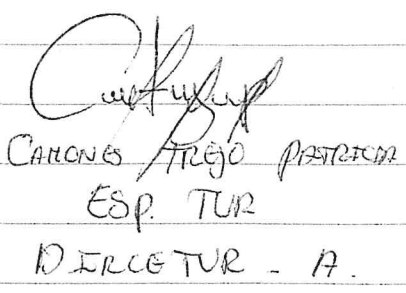 CAMONES TREJO PATRICIA
ESP. TUR
DIRCETUR - A.